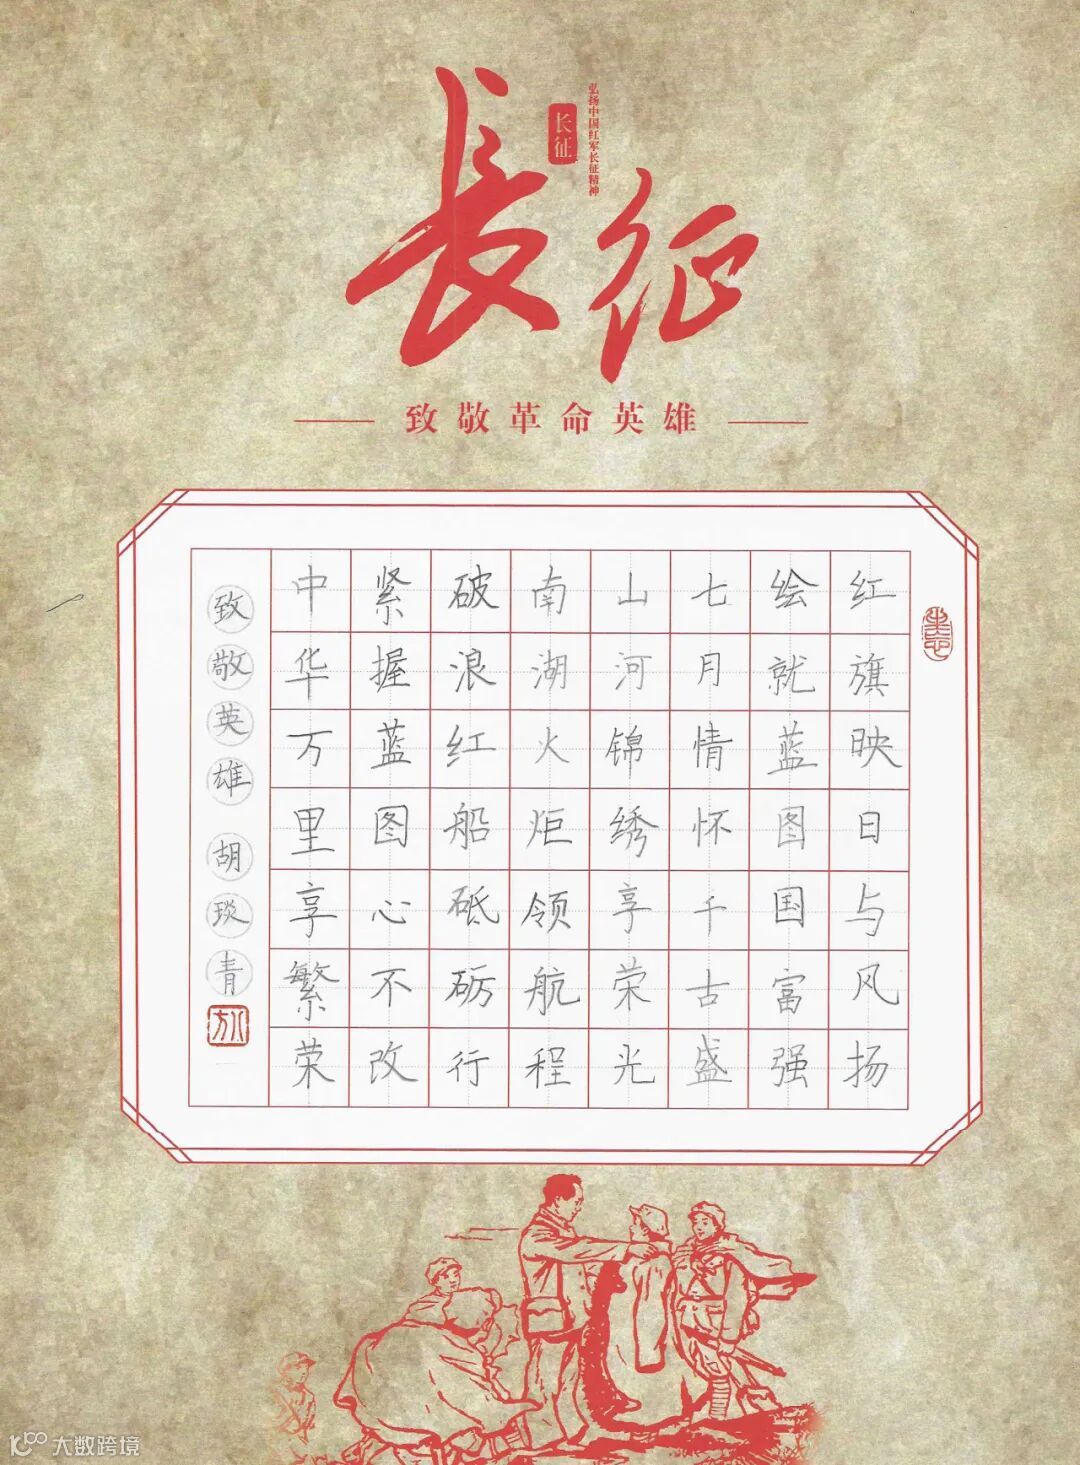 長征
长征
弘扬中国红军长征精神
致敬革命英雄
红旗映日与风扬
绘就蓝图国富强
七月情怀千古盛
山河锦绣享荣光
南湖火炬领航程
破浪红船砥砺行
紧握蓝图心不改
中华万里享繁荣
致敬英雄 胡琰青
大数跨境